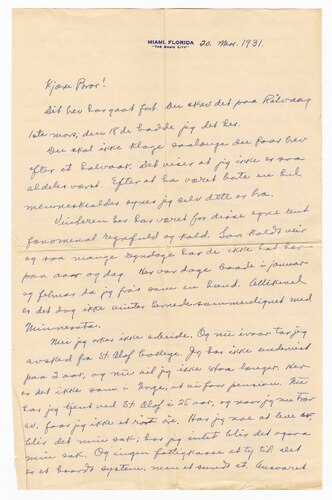 MIAMI, FLORIDA
"THE MAGIC CITY"
20 Mar. 1931.
Kjære Pover!
Dit brev har gaat fort. Du skrev det paa Rölvaag
1ste mars; den 18de hadde jeg det her.
Du skal ikke klage saalænge du faar brev
efter et halvaar. Det viser at jeg ikke er saa
aldeles værst. Efter at ha været borte en hel
menneskealder synes jeg selv dette er bra.
Vinteren her har været for disse egne rent
fenomenal regnfuld og kold. Saa koldt veir
og saa mange regndage har de ikke hat her
paa aar og dag. Her var dage baade i januar
og februar da jeg frøs som en hund. Allikevel
er det dog ikke vinter hernede sammenlignet med
Minnesota.
Mer jeg orker ikke arbeide. Og nu ivaar tar jeg
avsked fra St. Olaf College. Jeg har ikke undervist
paa 2 aar, og nu vil jeg ikke staa længer. Her
er det ikke som i Norge, at vi faar pension. Nu
har jeg tjent ved St. Olaf i 25 aar, og naar jeg nu trær
av, faar jeg ikke et rødt øre. Har jeg noe at leve av,
blir det min sak; har jeg intet blir det ogsaa
min sak. Og ingen fattigkasse at ty til. Det
er et haardt system, men et sundt et. Ansvaret